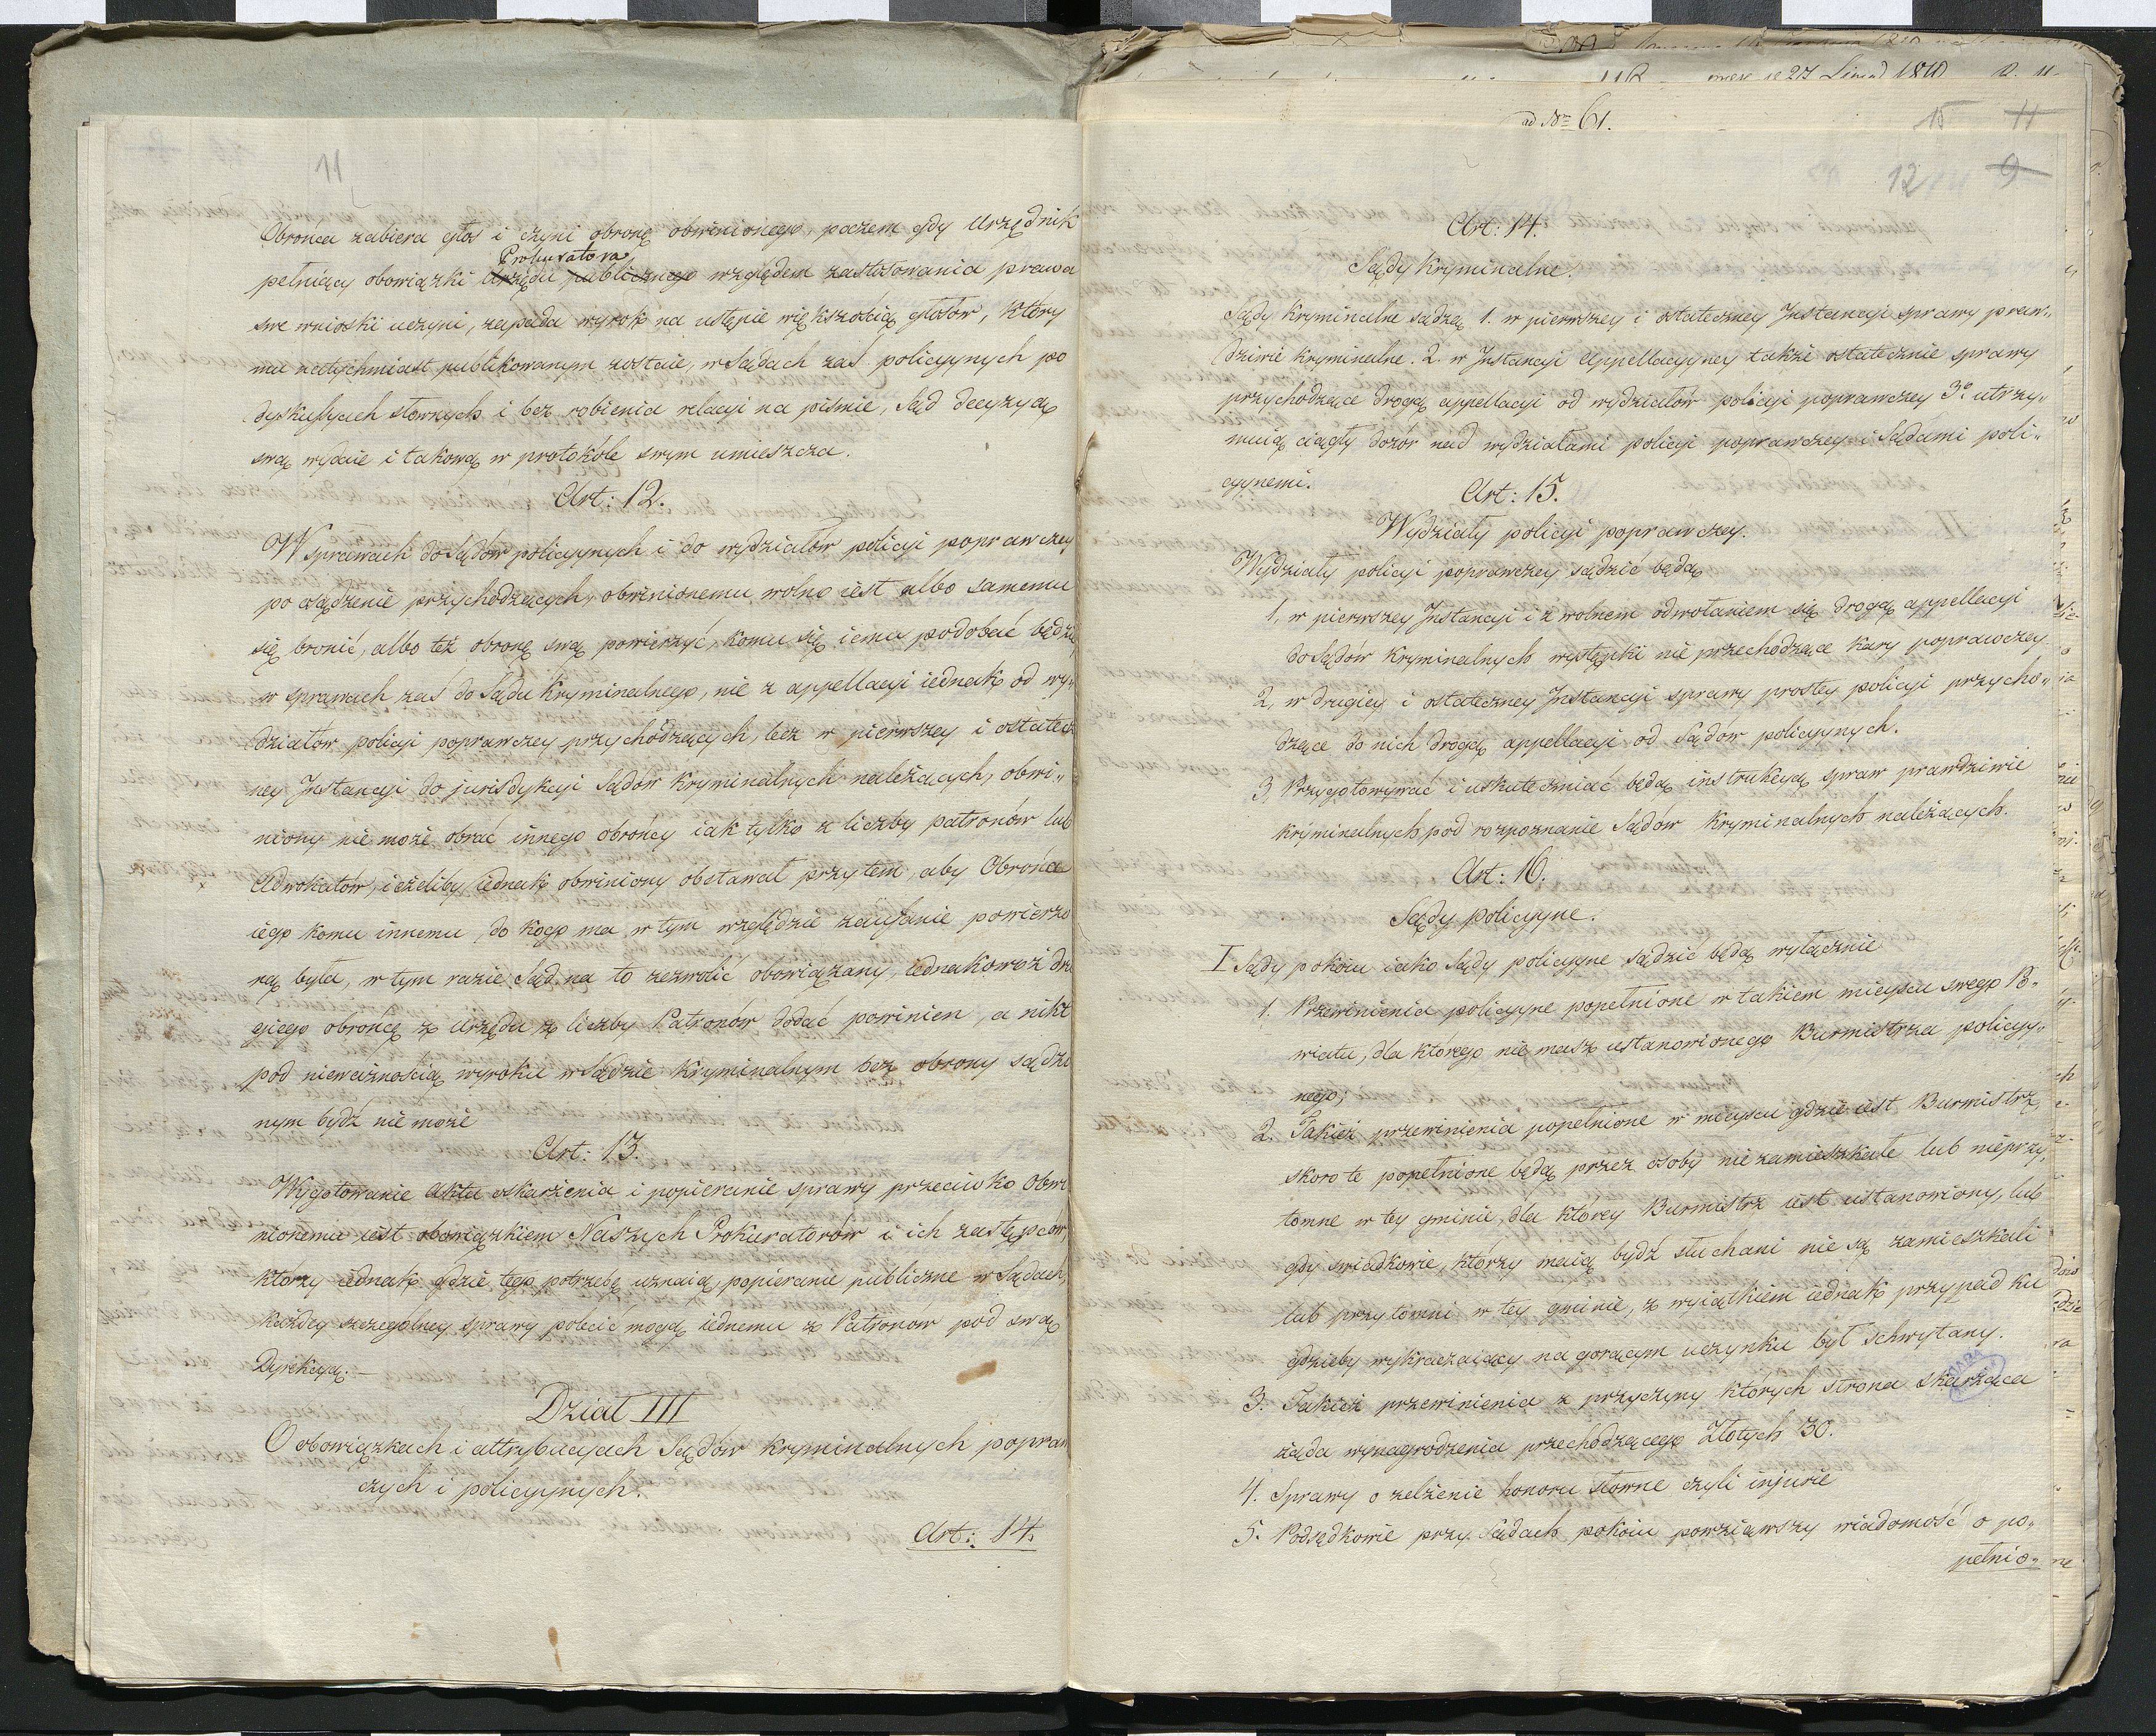 11
Obrońca zabiera głos i czyni obronę obwinionego, poczem gdy Urzędnik
Prokuratora
pełniący obowiązki Urzędu publicznego względem zastosowania prawa
swe wnioski uczyni, zapada wyrok na ustępie większością głosów, który
mu natychmiast publikowanym zostaie, w Sądach zaś policyynych po
dyskusyach słownych i bez robienia relacyi na piśmie, Sąd decyzyą
swą wydaie i takową w protokóle swym umieszcza.
Art: 12.
W sprawach do Sądów policyynych i do wydziałów policyi poprawczey
po osądzenie przychodzących, obwinionemu wolno iest albo samemu
się bronić, albo też obronę swą powierzyć, komu się iemu podobać będzie,
w sprawach zaś do Sądu Kryminalnego, nie z appellacyi iednak od wy„
działów policyi poprawczey przychodzących, lecz w pierwszey i ostatecz
ney Instancyi do jurisdykcyi Sądów Kryminalnych należących, obwi„
niony nie może obrać innego obrońcy iak tylko z liczby patronów lub
Adwokatów, ieżeliby iednak obwiniony obstawał przytem, aby Obrońca
iego komu innemu do kogo ma w tym względzie zaufanie powierzo
ną była, w tym razie Sąd na to zezwolić obowiązany, iednakowoż dru
giego obrońcę z Urzędu z liczby Patronów dodać powinien, a nikt
pod nieważnością wyroku w Sądzie Kryminalnym bez obrony sądzo
nym bydź nie może
Art: 13.
Wygotowanie Aktu oskarżenia i popieranie sprawy przeciwko Obwi
nionemu iest obowiązkiem Naszych Prokuratorów i ich zastępców,
którzy iednak gdzie tego potrzebę uznaią, popieranie publiczne w Sądach,
każdey szczególney sprawy polecić mogą iednemu z Patronów pod swą
Dyrekcyą. —
Dział III
O obowiązkach i attrybucyach Sądów Kryminalnych popraw
czych i policyynych.
Art: 14.
27 Listop 1810
ad Nr 61.
15 11
12 9
Art: 14.
Sądy Kryminalne.
Sądy Kryminalne sądzą 1. w pierwszey i ostateczney Instancyi sprawy praw„
dziwie kryminalne. 2. w Instancyi Appellacyyney także ostatecznie sprawy
przychodzące drogą appellacyi od wydziałów policyi poprawczey 3o utrzy„
muią ciągły dozór nad wydziałami policyi poprawczey i Sądami poli„
cyynemi.
Art: 15.
Wydziały policyi poprawczey.
Wydziały policyi poprawczey sądzić będą
1, w pierwszey Instancyi i z wolnem odwołaniem się drogą appellacyi
do Sądów Kryminalnych występki nie przechodzące kary poprawczey
2, w drugiey i ostateczney Instancyi sprawy prostey policyi przycho„
dzące do nich drogą appellacyi od Sądów policyynych.
3, Przygotowywać i uskuteczniać będą instrukcyą spraw prawdziwie
kryminalnych pod rozpoznanie Sądów Kryminalnych należących.
Art: 16.
Sądy policyyne.
I Sądy pokoiu iako Sądy policyyne sądzić będą wyłącznie
1. Przewinienia policyyne popełnione w takiem mieyscu swego Po„
wiatu, dla którego nie masz ustanowionego Burmistrza policyy„
nego;
2. Takież przewinienia popełnione w mieyscu gdzie iest Burmistrz,
skoro te popełnione będą przez osoby nie zamieszkałe lub nieprzy„
tomne w tey gminie, dla którey Burmistrz iest ustanowiony, lub
gdy świadkowie, którzy maią bydź słuchani nie są zamieszkali
lub przytomni w tey gminie, z wyiątkiem iednak przypadku
gdzieby wykraczaiący na gorącym uczynku był schwytany.
3. Takież przewinienia z przyczyny których strona skarżąca
żąda wynagrodzenia przechodzącego Złotych 30.
4. Sprawy o zelżenie honoru słowne czyli injurie
5. Podsędkowie przy Sądach pokoiu powziąwszy wiadomość o po„
pełnio„